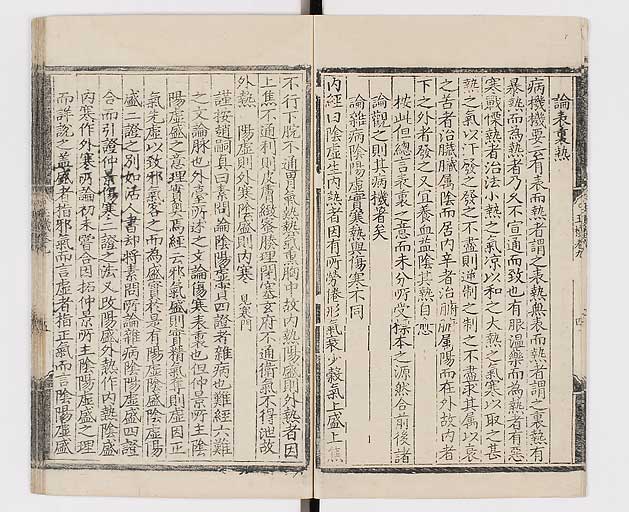 論表裏熱
病機機要云有表而熱者謂之表熱無表而熱者謂之裏熱有
暴熱而為熱者乃久不宣通而致也有服溫藥而為熱者有惡
寒戰慄熱者治法小熱之氣涼以和之大熱之氣寒以取之甚
熱之氣以汗發之發之不盡則逆制之制之不盡求其屬以衰
之苦者治臟臟屬陰而居內辛者治腑腑屬陽而在外故內者
下之外者發之又宜養血益陰其熱自愈
按此但總言表裏之意而未分所受標本之源然合前後諸
論觀之則其病機著矣
論雜病陰陽虛實寒熱與傷寒不同
內經曰陰虛生內熱者因有所勞倦形氣衰少穀氣上盛上焦
不行下脘不通胃氣熱熱氣熏胸中故內熱陽盛則外熱者因
上焦不通利則皮膚緻密腠理閉塞玄府不通衛氣不得泄故
外熱 陽虛則外寒陰盛則內寒 見寒門
謹按趙嗣真曰素問論陰陽虛實四證者雜病也難經六難
之文論脉也外臺所述之文論傷寒表裏也但仲景所主陰
陽虛盛之意理實奧焉經云邪氣盛則實精氣奪則虛因正
氣先虛以致邪氣客之而為盛實於是有陽虛陰盛陰虛陽
盛二證之別如活人書却將素問所論雜病陰陽虛盛四證
合而引證仲景傷寒二證之法又改陽盛外熱作內熱陰盛
內寒作外寒所論初未嘗合因拓仲景所主陰陽虛盛之理
而詳說之盖盛者指邪氣而言虛者指正氣而言陰陽虛盛